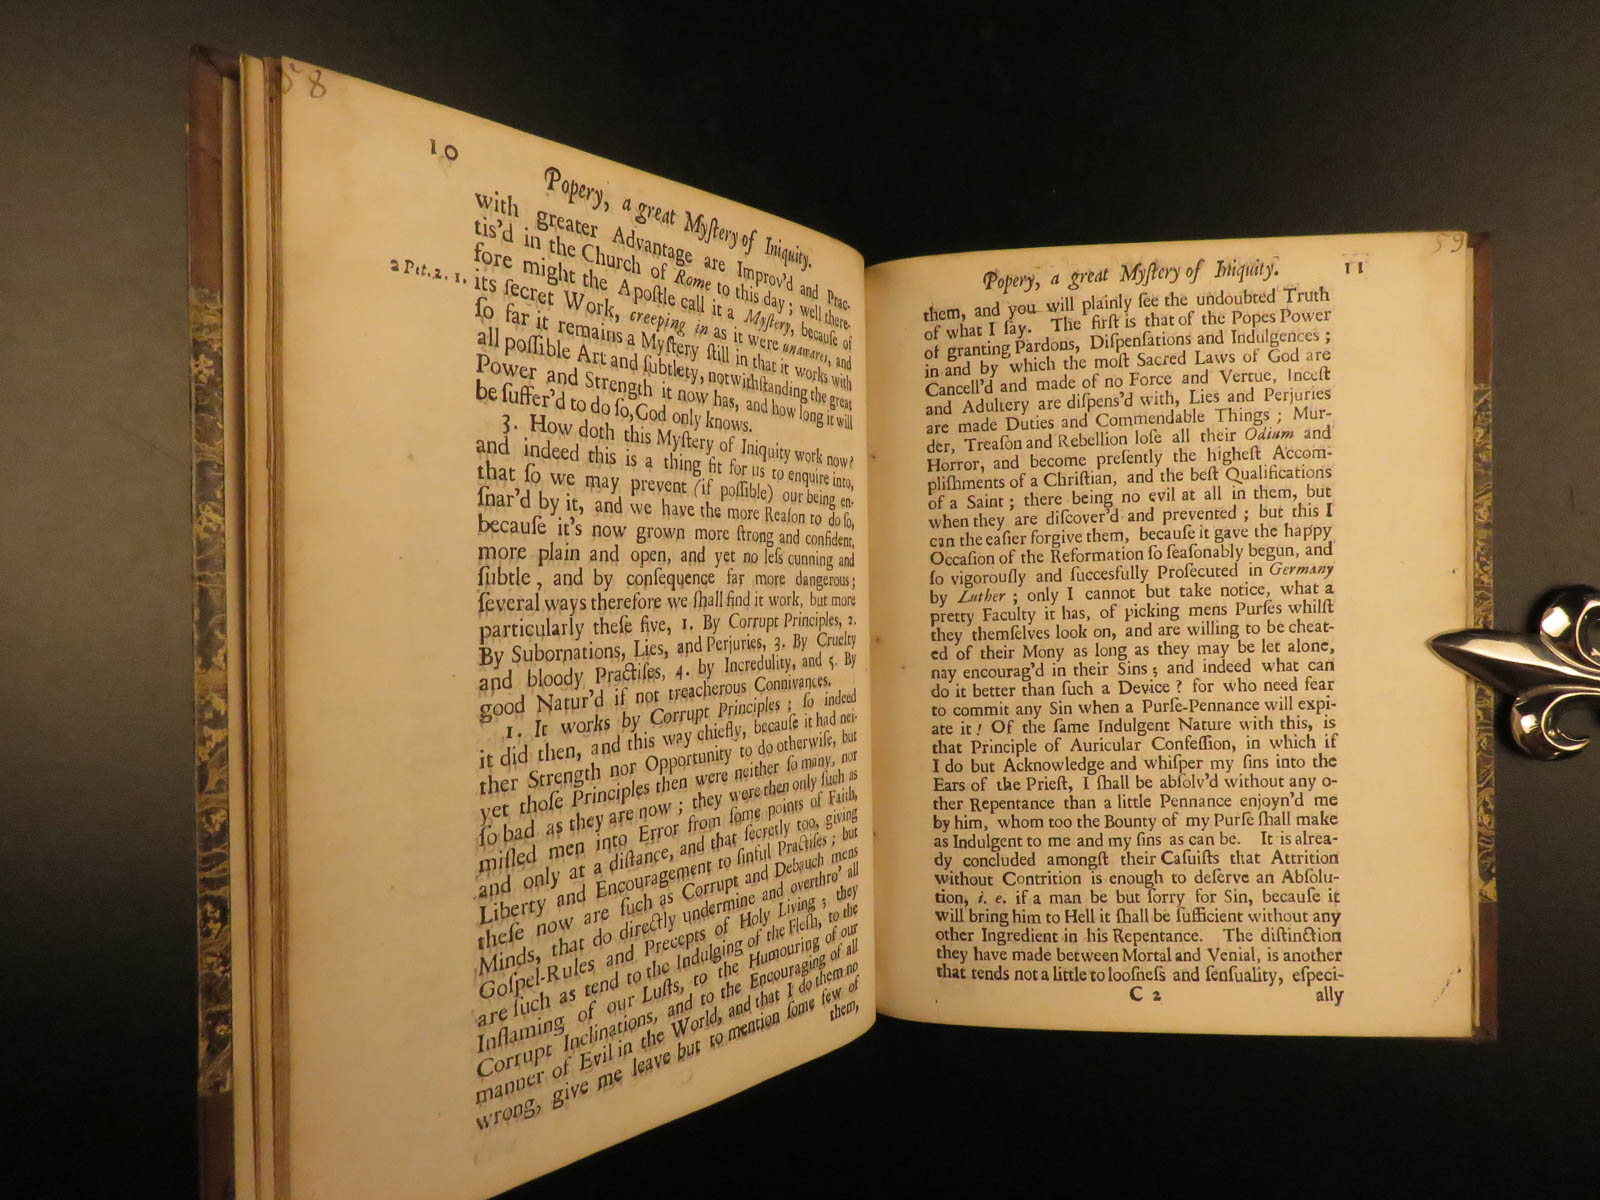 58
10
Popery, a great Myſtery of Iniquity.
with greater Advantage are Improv'd and Prac-
tis'd in the Church of Rome to this day; well there-
fore might the Apoſtle call it a Myſtery, becauſe of
2 Pet. 2. 1.
its ſecret Work, creeping in as it were unawares, and
ſo far it remains a Myſtery ſtill in that it works with
all poſſible Art and ſubtlety, notwithſtanding the great
Power and Strength it now has, and how long it will
be ſuffer'd to do ſo, God only knows.
3. How doth this Myſtery of Iniquity work now?
and indeed this is a thing fit for us to enquire into,
that ſo we may prevent (if poſſible) our being en-
ſnar'd by it, and we have the more Reaſon to do ſo,
becauſe it's now grown more ſtrong and confident,
more plain and open, and yet no leſs cunning and
ſubtle, and by conſequence far more dangerous;
ſeveral ways therefore we ſhall find it work, but more
particularly theſe five, 1. By Corrupt Principles, 2.
By Subornations, Lies, and Perjuries, 3. By Cruelty
and bloody Practiſes, 4. by Incredulity, and 5. By
good Natur'd if not treacherous Connivances.
1. It works by Corrupt Principles; ſo indeed
it did then, and this way chiefly, becauſe it had nei-
ther Strength nor Opportunity to do otherwiſe, but
yet thoſe Principles then were neither ſo many, nor
ſo bad as they are now; they were then only ſuch as
miſled men into Error from ſome points of Faith,
and only at a diſtance, and that ſecretly too, giving
Liberty and Encouragement to ſinful Practiſes; but
theſe now are ſuch as Corrupt and Debauch mens
Minds, that do directly undermine and overthro' all
Goſpel-Rules and Precepts of Holy Living; they
are ſuch as tend to the Indulging of the Fleſh, to the
Inflaming of our Luſts, to the Humouring of our
Corrupt Inclinations, and to the Encouraging of all
manner of Evil in the World, and that I do them no
wrong, give me leave but to mention ſome few of
them,
59
Popery, a great Myſtery of Iniquity.
11
them, and you will plainly ſee the undoubted Truth
of what I ſay. The firſt is that of the Popes Power
of granting Pardons, Diſpenſations and Indulgences;
in and by which the moſt Sacred Laws of God are
Cancell'd and made of no Force and Vertue, Inceſt
and Adultery are diſpens'd with, Lies and Perjuries
are made Duties and Commendable Things; Mur-
der, Treaſon and Rebellion loſe all their Odium and
Horror, and become preſently the higheſt Accom-
pliſhments of a Chriſtian, and the beſt Qualifications
of a Saint; there being no evil at all in them, but
when they are diſcover'd and prevented; but this I
can the eaſier forgive them, becauſe it gave the happy
Occaſion of the Reformation ſo ſeaſonably begun, and
ſo vigorouſly and ſuccesfully Proſecuted in Germany
by Luther; only I cannot but take notice, what a
pretty Faculty it has, of picking mens Purſes whilſt
they themſelves look on, and are willing to be cheat-
ed of their Mony as long as they may be let alone,
nay encourag'd in their Sins; and indeed what can
do it better than ſuch a Device? for who need fear
to commit any Sin when a Purſe-Pennance will expi-
ate it! Of the ſame Indulgent Nature with this, is
that Principle of Auricular Confeſſion, in which if
I do but Acknowledge and whiſper my ſins into the
Ears of the Prieſt, I ſhall be abſolv'd without any o-
ther Repentance than a little Pennance enjoyn'd me
by him, whom too the Bounty of my Purſe ſhall make
as Indulgent to me and my ſins as can be. It is alrea-
dy concluded amongſt their Caſuiſts that Attrition
without Contrition is enough to deſerve an Abſolu-
tion, i. e. if a man be but ſorry for Sin, becauſe it
will bring him to Hell it ſhall be ſufficient without any
other Ingredient in his Repentance. The diſtinction
they have made between Mortal and Venial, is another
that tends not a little to looſneſs and ſenſuality, eſpeci-
C 2
ally